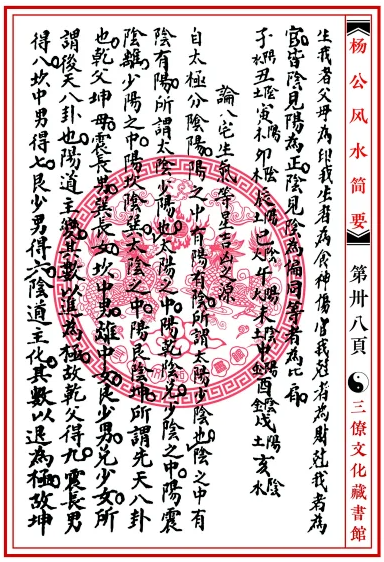 杨公风水简要
第卅八頁
三僚文化藏書館
生我者父母為印我生者為食神傷官我尅者為財尅我者為
官皆陰見陽為正陰見陰為偏同等者為比肩
子陽水丑陰土寅陽木卯陰木辰陽土巳陰火午陽火未陰土申陽金酉陰金戌陽土亥陰水
論八宅生氣等星吉凶之源
自太極分陰陽陽之中有陽有陰所謂太陽少陰也陰之中有
陰有陽所謂太陰少陽也太陽之中陽乾陰兌少陰之中陽震
陰離少陽之中陽坎陰巽太陰之中陽艮陰坤所謂先天八卦
也乾父坤母震長男巽長女坎中男離中女艮少男兌少女所
謂後天八卦也陽道主變其數以進為極故乾父得九震長男
得八坎中男得七艮少男得六陰道主化其數以退為極故坤